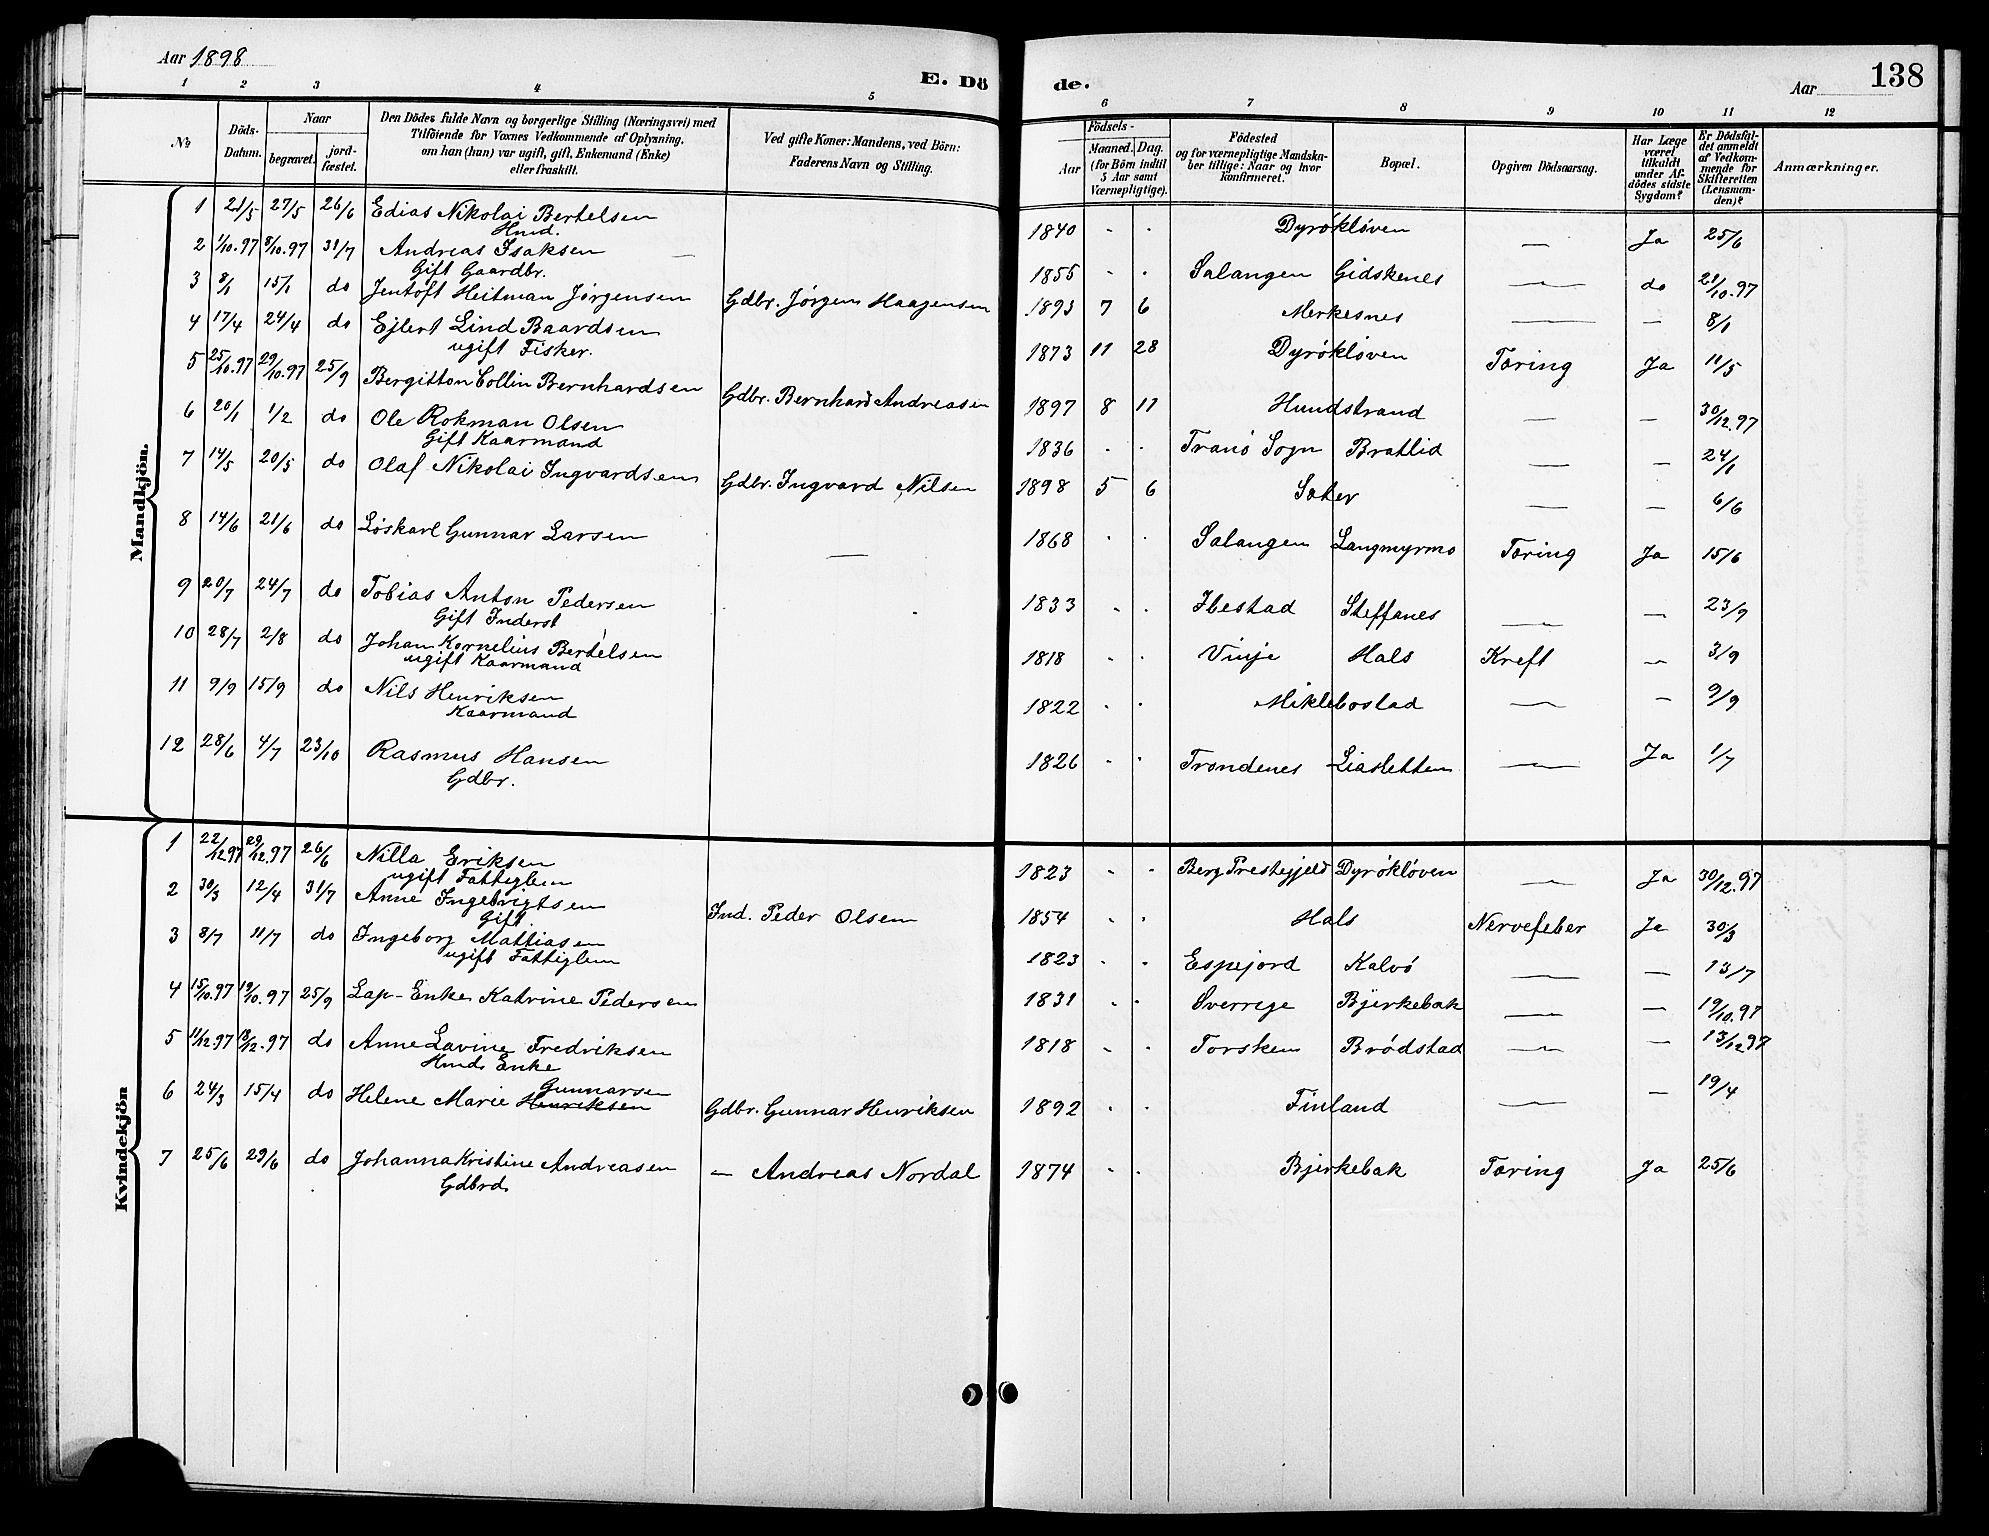 Aar 1898
E. Dö
de.
Aar
138
1 2 3 4 5 6 7 8 9 10 11 12
No
Döds-Datum.
Naar
begravet.
jord-fæstet.
Den Dödes fulde Navn og borgerlige Stilling (Næringsvei) med
Tilföiende for Voxnes Vedkommende af Oplysning,
om han (hun) var ugift, gift, Enkemand (Enke)
eller fraskilt.
Ved gifte Koner: Mandens, ved Börn:
Faderens Navn og Stilling.
Födsels-
Aar
Maaned. Dag.
(for Börn indtil
5 Aar samt
Værnepligtige).
Födested
og for værnepligtige Mandska-
ber tillige: Naar og hvor
konfirmeret.
Bopæl.
Opgiven Dödsaarsag.
Har Læge
været
tilkaldt
under Af-
dödes sidste
Sygdom?
Er Dödsfal-
det anmeldt
af Vedkom-
mende for
Skifteretten
(Lensman-
den)?
Anmærkninger.
Mandkjön.
1 21/5 27/5 26/6 Edias Nikolai Bertelsen 1840 " " Dyrökløven — Ja 25/6
Hmd.
2 1/10.97 8/10.97 31/7 Andreas Isaksen — 1855 " " Salangen Gidskenes — do 21/10.97
Gift Gaardbr.
3 8/1 15/1 do Jentoft Heitman Jørgensen Gdbr. Jørgen Haagensen 1893 7 6 Merkesnes — — 8/1
4 17/4 24/4 do Ejlert Lind Baardsen 1873 11 28 Dyrökløven Tæring Ja 11/5
ugift Fisker.
5 25/10.97 29/10.97 25/9 Bergitton Collin Bernhardsen Gdbr. Bernhard Andreasen 1897 8 11 Hundstrand — — 30/12.97
6 20/1 1/2 do Ole Rokman Olsen 1836 " " Tranö Sogn Bratlid — — 24/1
Gift Kaarmand
7 14/5 20/5 do Olaf Nikolai Ingvardsen Gdbr. Ingvard Nilsen 1898 5 6 Sæter — — 6/6
8 14/6 21/6 do Løskarl Gunnar Larsen — 1868 " " Salangen Langmyrmo Tæring Ja 15/6
9 20/7 24/7 do Tobias Anton Pedersen 1833 " " Ibestad Steffanes — — 23/9
Gift Inderst
10 28/7 2/8 do Johan Kornelius Bertelsen 1818 " " Vinje Hals Kreft — 3/9
ugift Kaarmand
11 9/9 15/9 do Nils Henriksen 1822 " " Miklebostad — — 9/9
Kaarmand
12 28/6 4/7 23/10 Rasmus Hansen 1826 " " Trondenes Liasletten — Ja 1/7
Gdbr.
Kvindekjön
1 22/12.97 29/12.97 26/6 Nilla Eriksen 1823 " " Berg Prestegjeld Dyrökløven — Ja 30/12.97
ugift Fattiglem
2 30/3 12/4 31/7 Anne Ingebrigtsen Ind. Peder Olsen 1854 " " Hals Nervefeber Ja 30/3
Gift
3 8/7 11/7 do Ingeborg Mattiasen 1823 " " Espejord Kalvö — — 13/7
ugift Fattiglem
4 15/10.97 19/10.97 25/9 Lap-Enke Katrine Pedersen 1831 " " Sverrige Bjerkebak — — 19/10.97
5 11/12.97 13/12.97 do Anne Lavine Fredriksen 1818 " " Torsken Brödstad — — 13/12.97
Hmds Enke
Gunnarsen
6 24/3 15/4 do Helene Marie Henriksen Gdbr. Gunnar Henriksen 1892 " " Finland — — 19/4
7 25/6 29/6 do Johanna Kristine Andreasen — Andreas Nordal 1874 " " Bjerkebak Tæring Ja 25/6
Gdbrd.